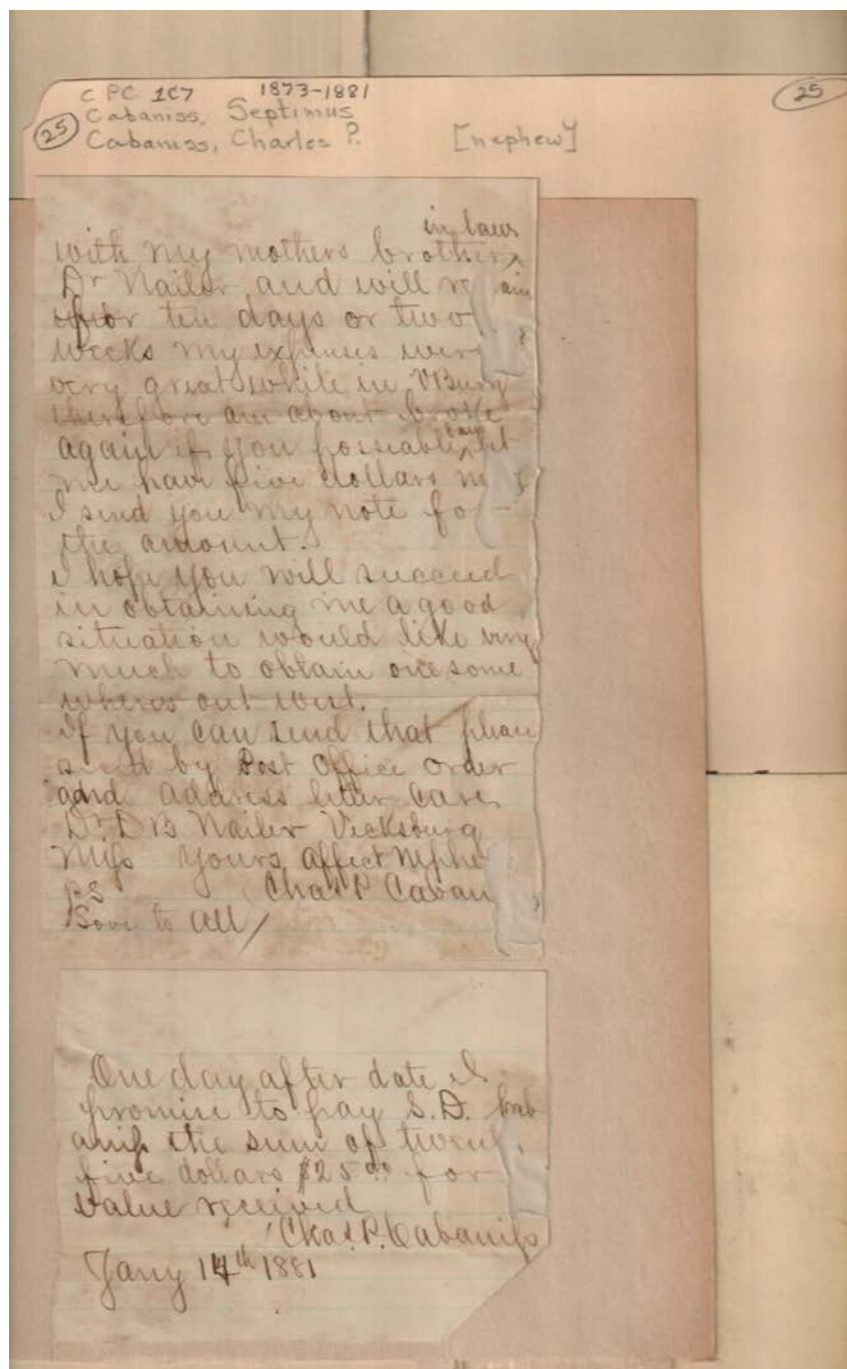 C PC 1C7 1873-1881
25
Cabaniss, Septimus
25 Cabaniss, Charles P. [nephew]
in laws
with my mothers brother
Dr Nailer and will re ain
for ten days or two
weeks my expenses were
very great while in VBurg
therefore am about broke
again if you possiable can let
me have five dollars
I send you my note fo
the amount.
I hope you will succeed
in obtaining me a good
situation would like very
much to obtain one some
wheres out west.
If you can send that please
send by Post Office order
and address letter care
Dr. D B Nailer Vicksburg
Miss yours affect Nphe
PS Chas P Caban
Love to All
One day after date I
promise to pay S.D. Cab
aniss the sum of twent
five dollars $25.00 for
value received
Chas. P. Cabaniss
Jany 14th 1881